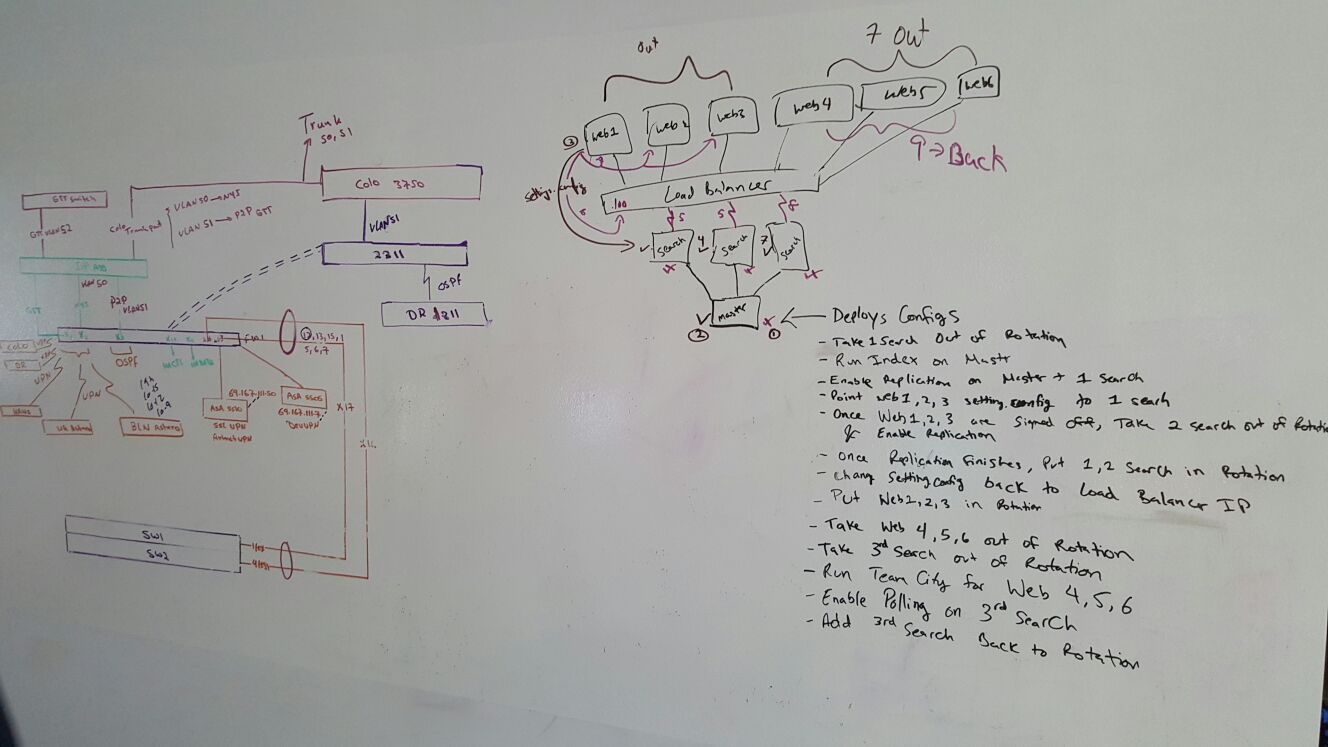 Trunk
50, 51
Colo 3750
GTT Switch
VLAN 50 → NYS
VLAN 51 → P2P GTT
GTT VLAN 52
VLAN 51
2811
OSPF
VLAN 50
P2P
VLAN 51
GTT
DR
FW1
OSPF
COLO
DR
VPN
VPN
12, 13, 15, 1
5, 6, 7
69.167.111.50
ASA 5510
SSL VPN
ASA 5505
69.167.111.7
Dev VPN
X 17
X 16
SW1
SW2
out
7 out
web1
web2
web3
web4
web5
web6
3
9 → Back
settings.config
Load Balancer
.100
6
5
5
8
Search
4
Search
7
Search
master
2
1
← Deploys Configs
- Take 1 Search Out of Rotation
- Run Index on Mastr
- Enable Replication on Master + 1 Search
- Point web1, 2, 3 setting.config to 1 search
- Once Web1, 2, 3 are Signed off, Take 2 search out of Rotation
& Enable Replication
- Once Replication Finishes, Put 1, 2 Search in Rotation
- Chang Setting.config back to Load Balancer IP
- Put Web1, 2, 3 in Rotation
- Take Web 4, 5, 6 out of Rotation
- Take 3rd Search out of Rotation
- Run Team City for Web 4, 5, 6
- Enable Polling on 3rd Search
- Add 3rd Search Back to Rotation